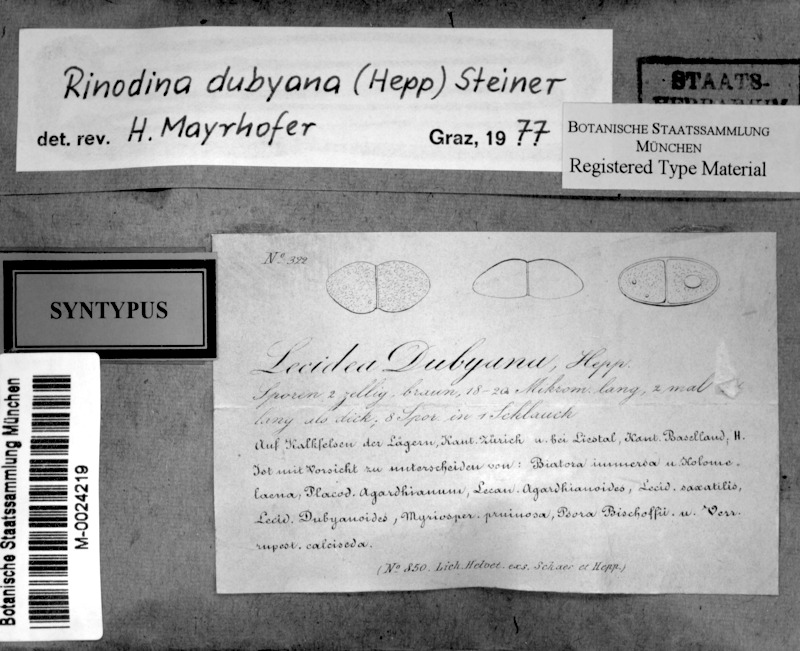 Rinodina dubyana (Hepp) Steiner
det. rev. H. Mayrhofer Graz, 19 77
STAATS-
HERBARIUM
BOTANISCHE STAATSSAMMLUNG
MÜNCHEN
Registered Type Material
SYNTYPUS
Botanische Staatssammlung München
M-0024219
Nº 322
Lecidea Dubyana, Hepp.
Sporen 2 zellig, braun, 18-20 Mikrom. lang, 2 mal
lang als dick; 8 Spor. in 1 Schlauch
Auf Kalkfelsen der Lägern, Kant. Zürich u. bei Liestal, Kant. Baselland; H.
Ist mit Vorsicht zu unterscheiden von: Biatora immersa u. Holome-
laena, Placod. Agardhianum, Lecan. Agardhianoides, Lecid. saxatilis,
Lecid. Dubyanoides, Myriosper. pruinosa, Psora Bischoffii. u. Verr.
rupest. calciseda.
(Nº 850. Lich. Helvet. exs. Schaer et Hepp.)